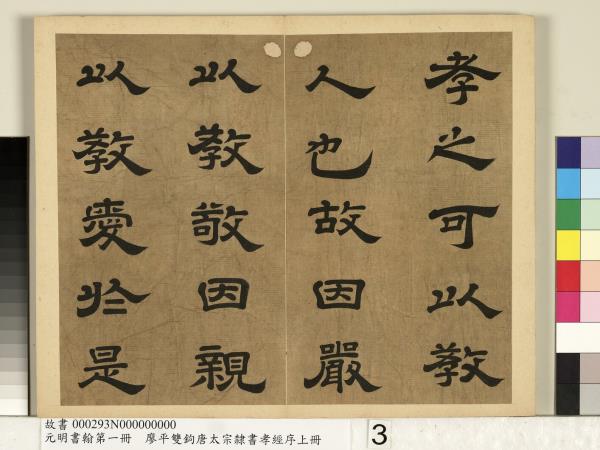 孝之可以教
人也故因嚴
以教敬因親
以教愛於是
故書 000293N000000000
元明書翰第一冊　廖平雙鉤唐太宗隸書孝經序上冊
3